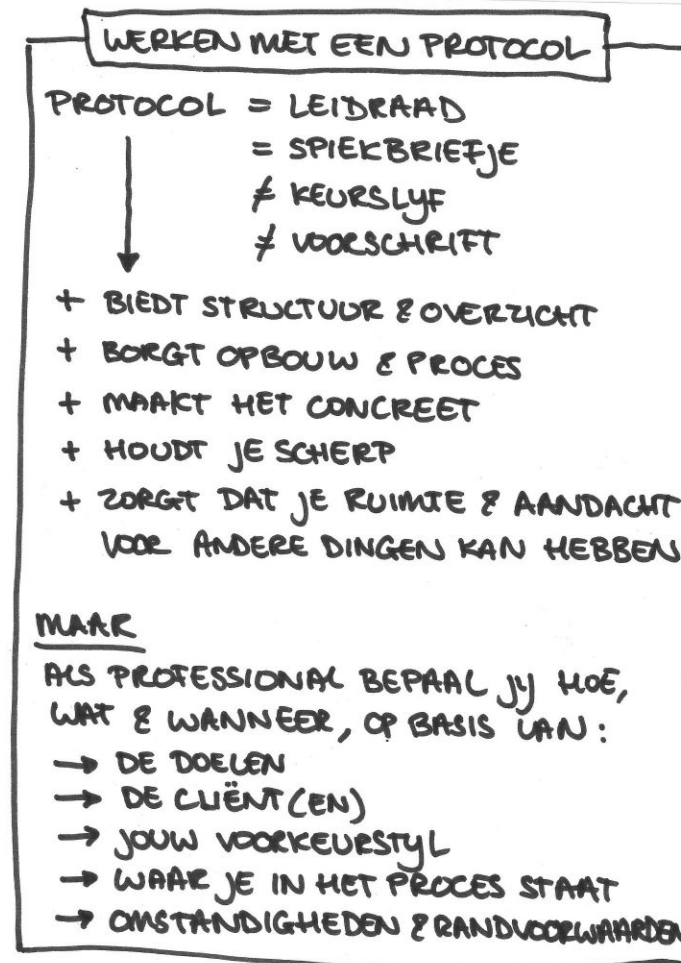 WERKEN MET EEN PROTOCOL
PROTOCOL = LEIDRAAD
= SPIEKBRIEFJE
≠ KEURSLIJF
≠ VOORSCHRIFT
+ BIEDT STRUCTUUR & OVERZICHT
+ BORGT OPBOUW & PROCES
+ MAAKT HET CONCREET
+ HOUDT JE SCHERP
+ ZORGT DAT JE RUIMTE & AANDACHT
VOOR ANDERE DINGEN KAN HEBBEN
MAAR
ALS PROFESSIONAL BEPAAL JIJ HOE,
WAT & WANNEER, OP BASIS VAN:
→ DE DOELEN
→ DE CLIËNT(EN)
→ JOUW VOORKEURSTIJL
→ WAAR JE IN HET PROCES STAAT
→ OMSTANDIGHEDEN & RANDVOORWAARDEN